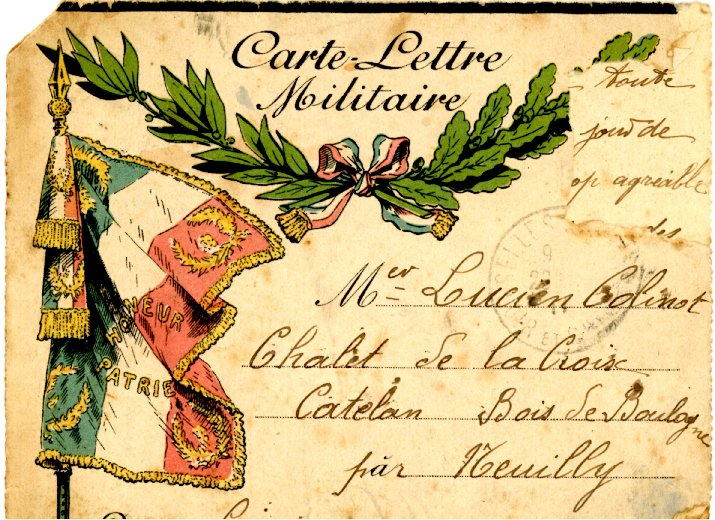 Carte-Lettre
Militaire
toute
jour de
op agréable
des
HONNEUR
PATRIE
CELLE
Mer Lucien Colinot
Chalet de la Croix
Catelan Bois de Boulogne
par Neuilly